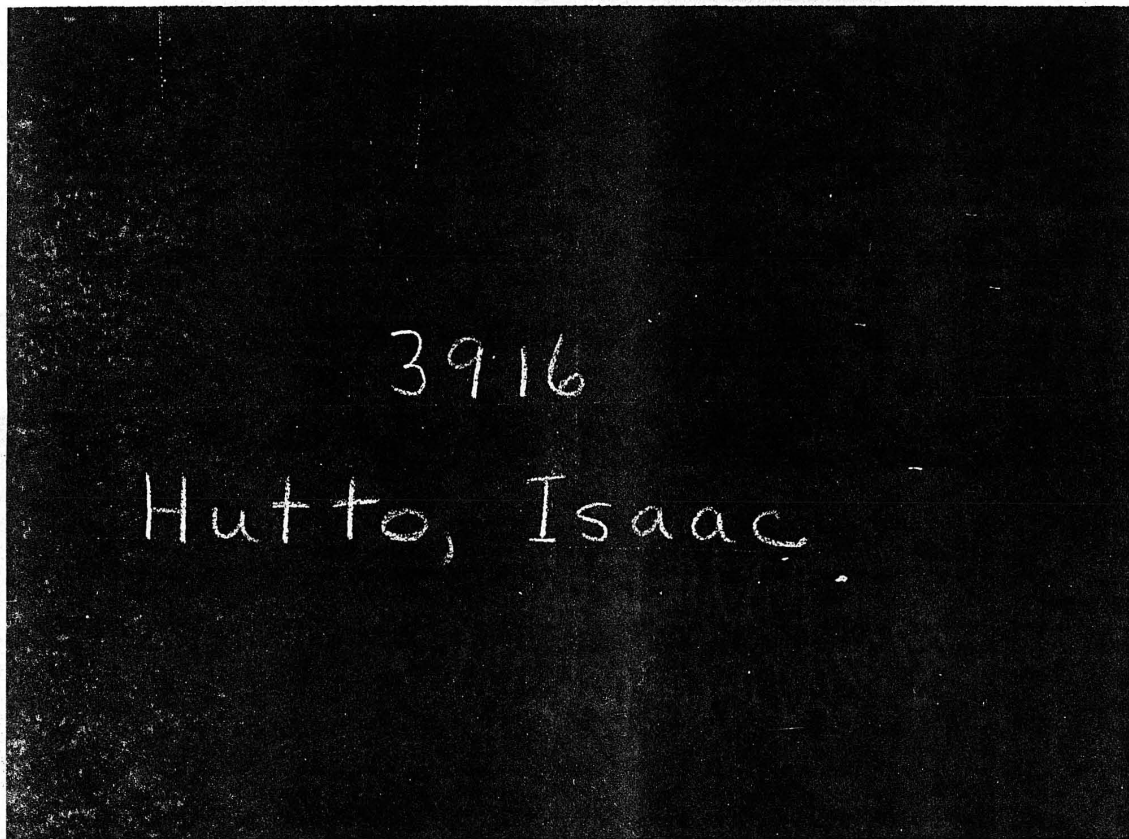 3916
Hutto, Isaac.